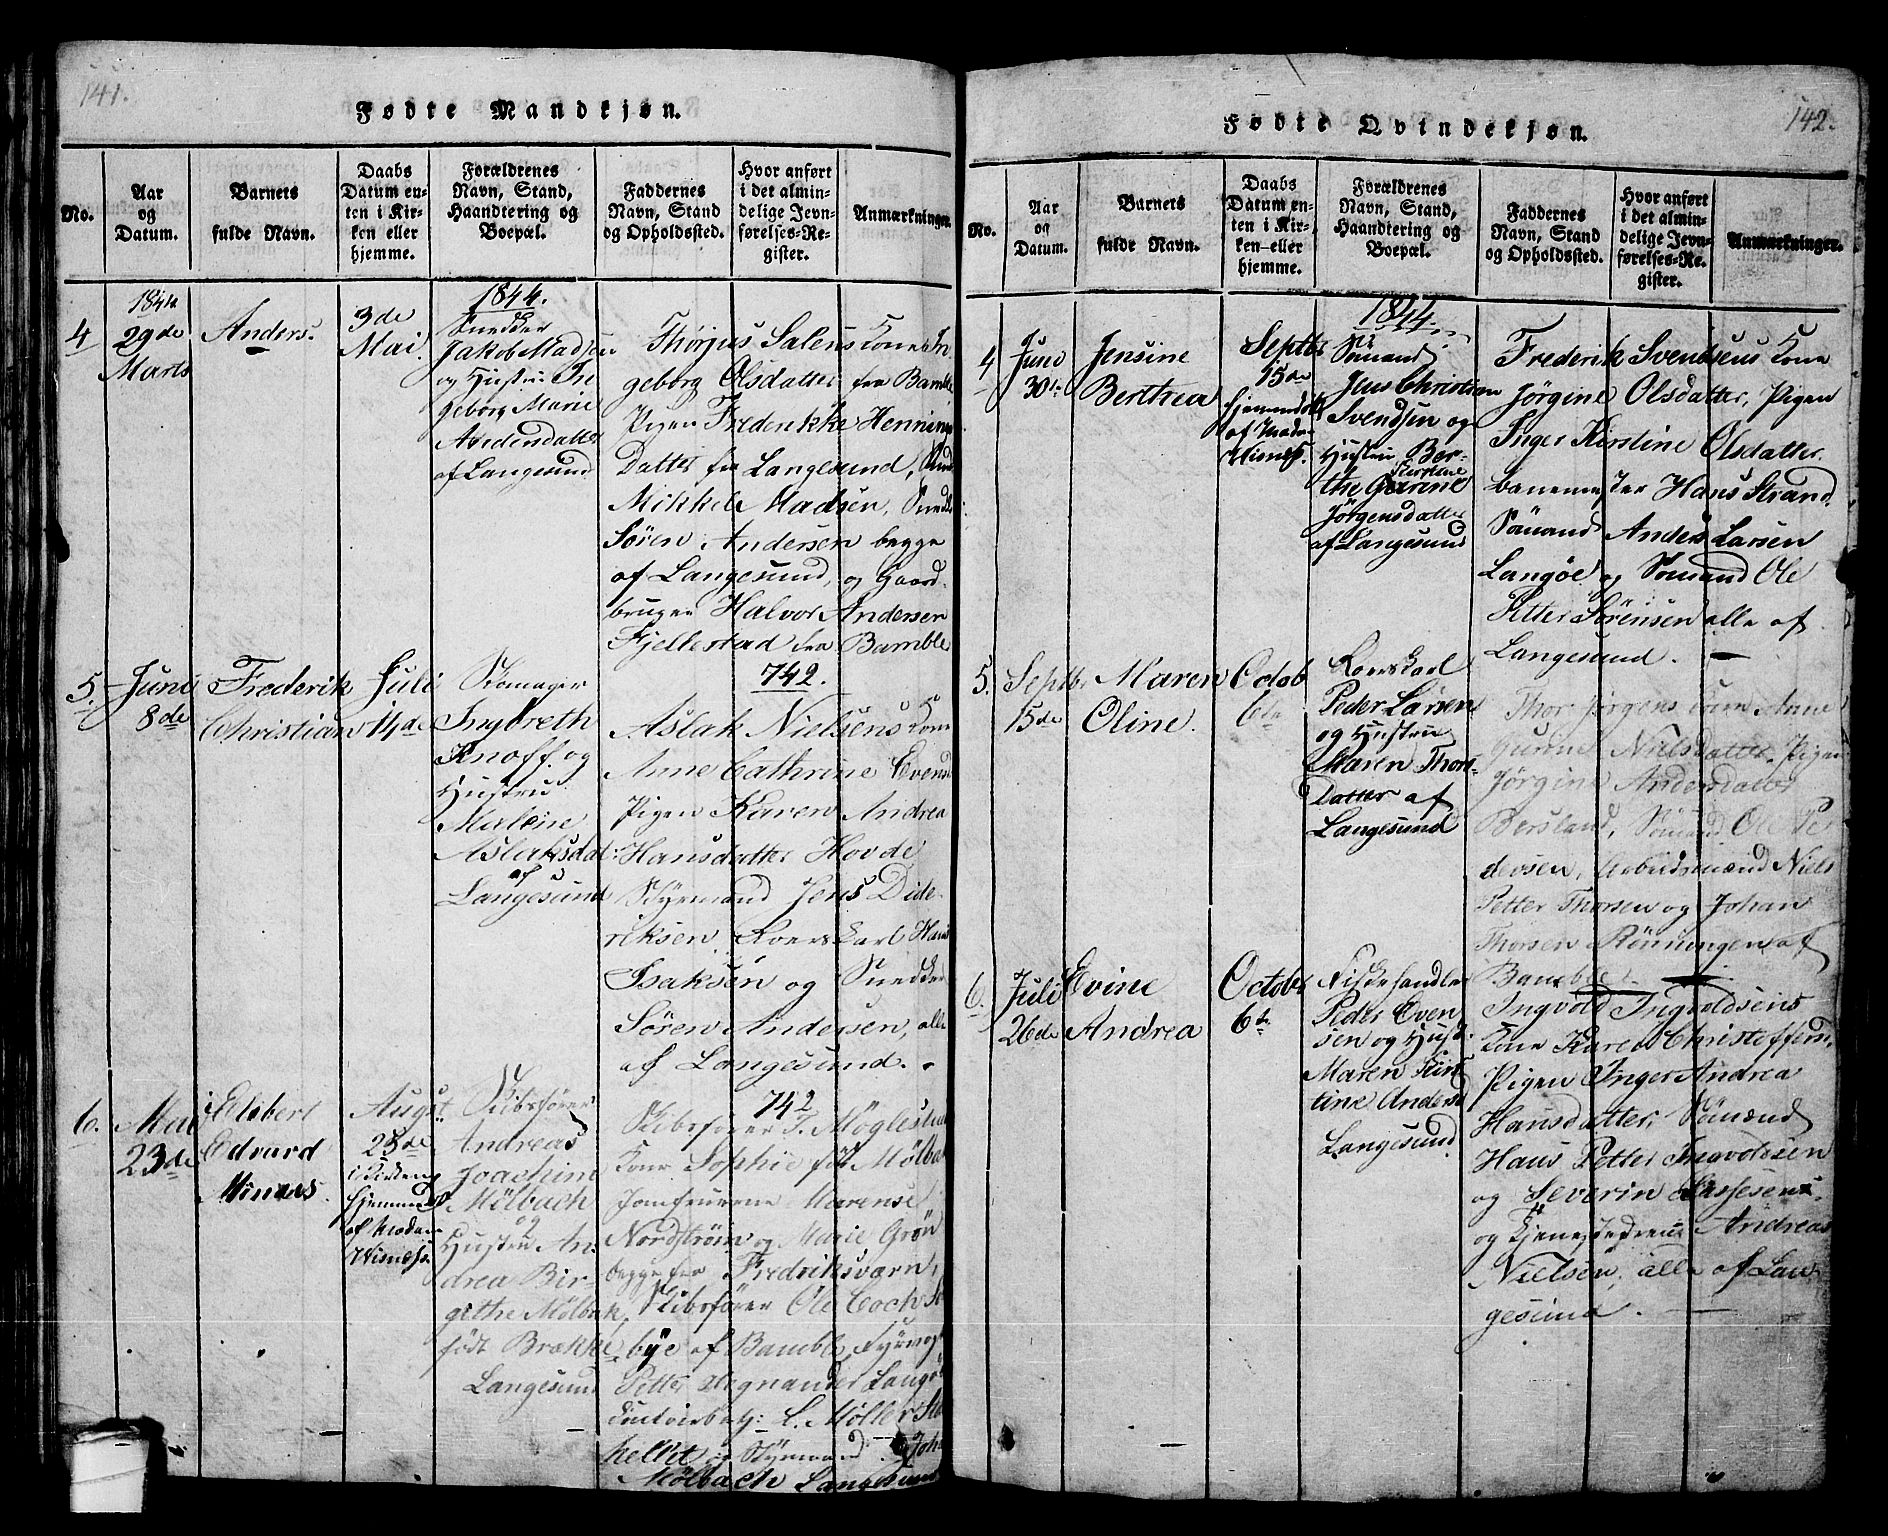 141.
Fødte Mandkjøn.
No.
Aar
og
Datum.
Barnets
fulde Navn.
Daabs
Datum en-
ten i Kir-
ken eller
hjemme.
Forældrenes
Navn, Stand,
Haandtering og
Boepæl.
Faddernes
Navn, Stand
og Opholdssted.
Hvor anført
i det almin-
delige Jevn-
førelses-Re-
gister.
Anmærkninger.
4
1844
29de
Marts
Anders.
3de
Mai.
1844.
Snedker
Jakob Madsen
og Hustru In
geborg Marie
Andersdatter
af Langesund
Thorjus Salens Kone In
geborg Olsdatter fra Bamble
Pigen Frederikke Hennings
Datter fra Langesund,
Mikkel Madsen, Snedk
Søren Andersen begge
af Langesund, og Gaard-
bruger Halvor Andersen
Fjellestad fra Bamble
5.
Juni
8de
Frederik
Christian
Juli
14de
Skomager
Ingbreth
Knoff og
Hustru
Malene
Aslaksdat:
af
Langesund
742.
Aslak Nielsens Kone
Anne Cathrine Evens
Pigen Karen Andrea
Hansdatter Hovde
Styrmand Jens Dide-
riksen, Roerskarl Hans
Isaksen og Snedker
Søren Andersen, alle
af Langesund.
6.
Mai
23de
Elebert
Edvard
Minaas.
Augst
25de
i Kirken
hjemmed
af Madam
Skibsfører
Andreas
Joachim
Mølbach
og
Hustru An-
drea Bir-
githe Mølbak
født Brække
Langesund
742
Skibsfører T. Møglestu
Kone Sophie født Mølba
Jomfruerne Marense
Nordstrøm og Marie Grøn
begge fra Fredriksværn,
Skibsfører Ole Coch
bye af Bamble, Fyrvog
Petter Langø
L. Møller
og Styrmand Joh
Mølbach Langesund
142.
Fødte Qvindekjøn.
No.
Aar
og
Datum.
Barnets
fulde Navn.
Daabs
Datum en-
ten i Kir-
ken eller
hjemme.
Forældrenes
Navn, Stand,
Haandtering og
Boepæl.
Faddernes
Navn, Stand
og Opholdssted.
Hvor anført
i det almin-
delige Jevn-
førelses-Re-
gister.
Anmærkninger.
4
Juni
30te
Jensine
Berthea
Septbr
15de
hjemmedøbt
af Mada-
1844.
Sømand
Jens Christian
Svendsen og
Hustru Ber-
Kirstine
the Gurine
Jørgensdatter
af Langesund
Frederik Svendsens Kone
Jørgine Olsdatter, Pigen
Inger Kirstine Olsdatter.
banemester Hans Strand.
Sømand Anders Larsen
Langøe og Sømand Ole
Petter Sørensen alle af
Langesund.
5.
Septbr
15de
Maren
Oline.
Octob
6te
Roerskarl
Peder Larsen
og Hustru
Maren Thors-
Datter af
Langesund
Thor Jørgens Kone Anne
Gurine Nielsdatter, Pigen
Jørgine Andersdatter
Bersland, Sømand Ole Pe
dersen, Arbeidsmænd Niels
Petter Thorsen og Johan
Thorsen Rønningen af
Bamble.
6.
Juli
26de
Evine
Andrea
Octobr
6te
Fiskehandler
Peder Even
sen og Hust.
Maren Kirs
tine Anders
Langesund
Ingvold Ingvoldsens
Kone Karen Christoffersd.
Pigen Inger Andrea
Hansdatter, Sømænd
Hans Petter Ingvoldsen
og Severin
og Tjenestedreng Andreas
Nielsen, alle af Lan
gesund.